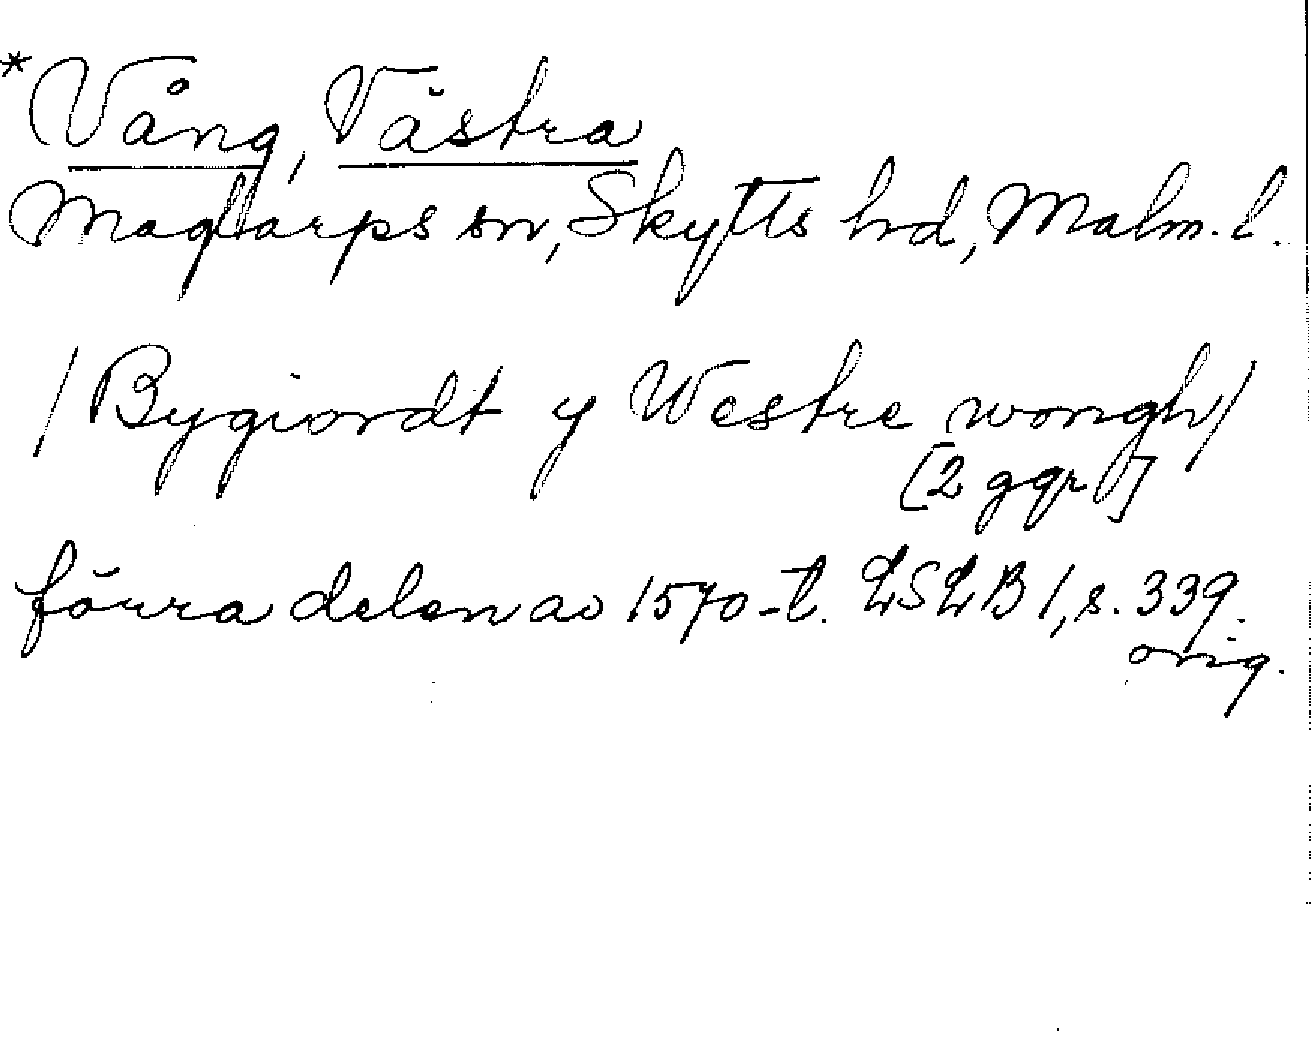 *Vång, Västra
Maglarps sn, Skytts hd, Malm. l.
/Bygiordt y Westre wongh/
[2 ggr]
förra delen av 1570-t. LSLB 1, s. 339.
orig.